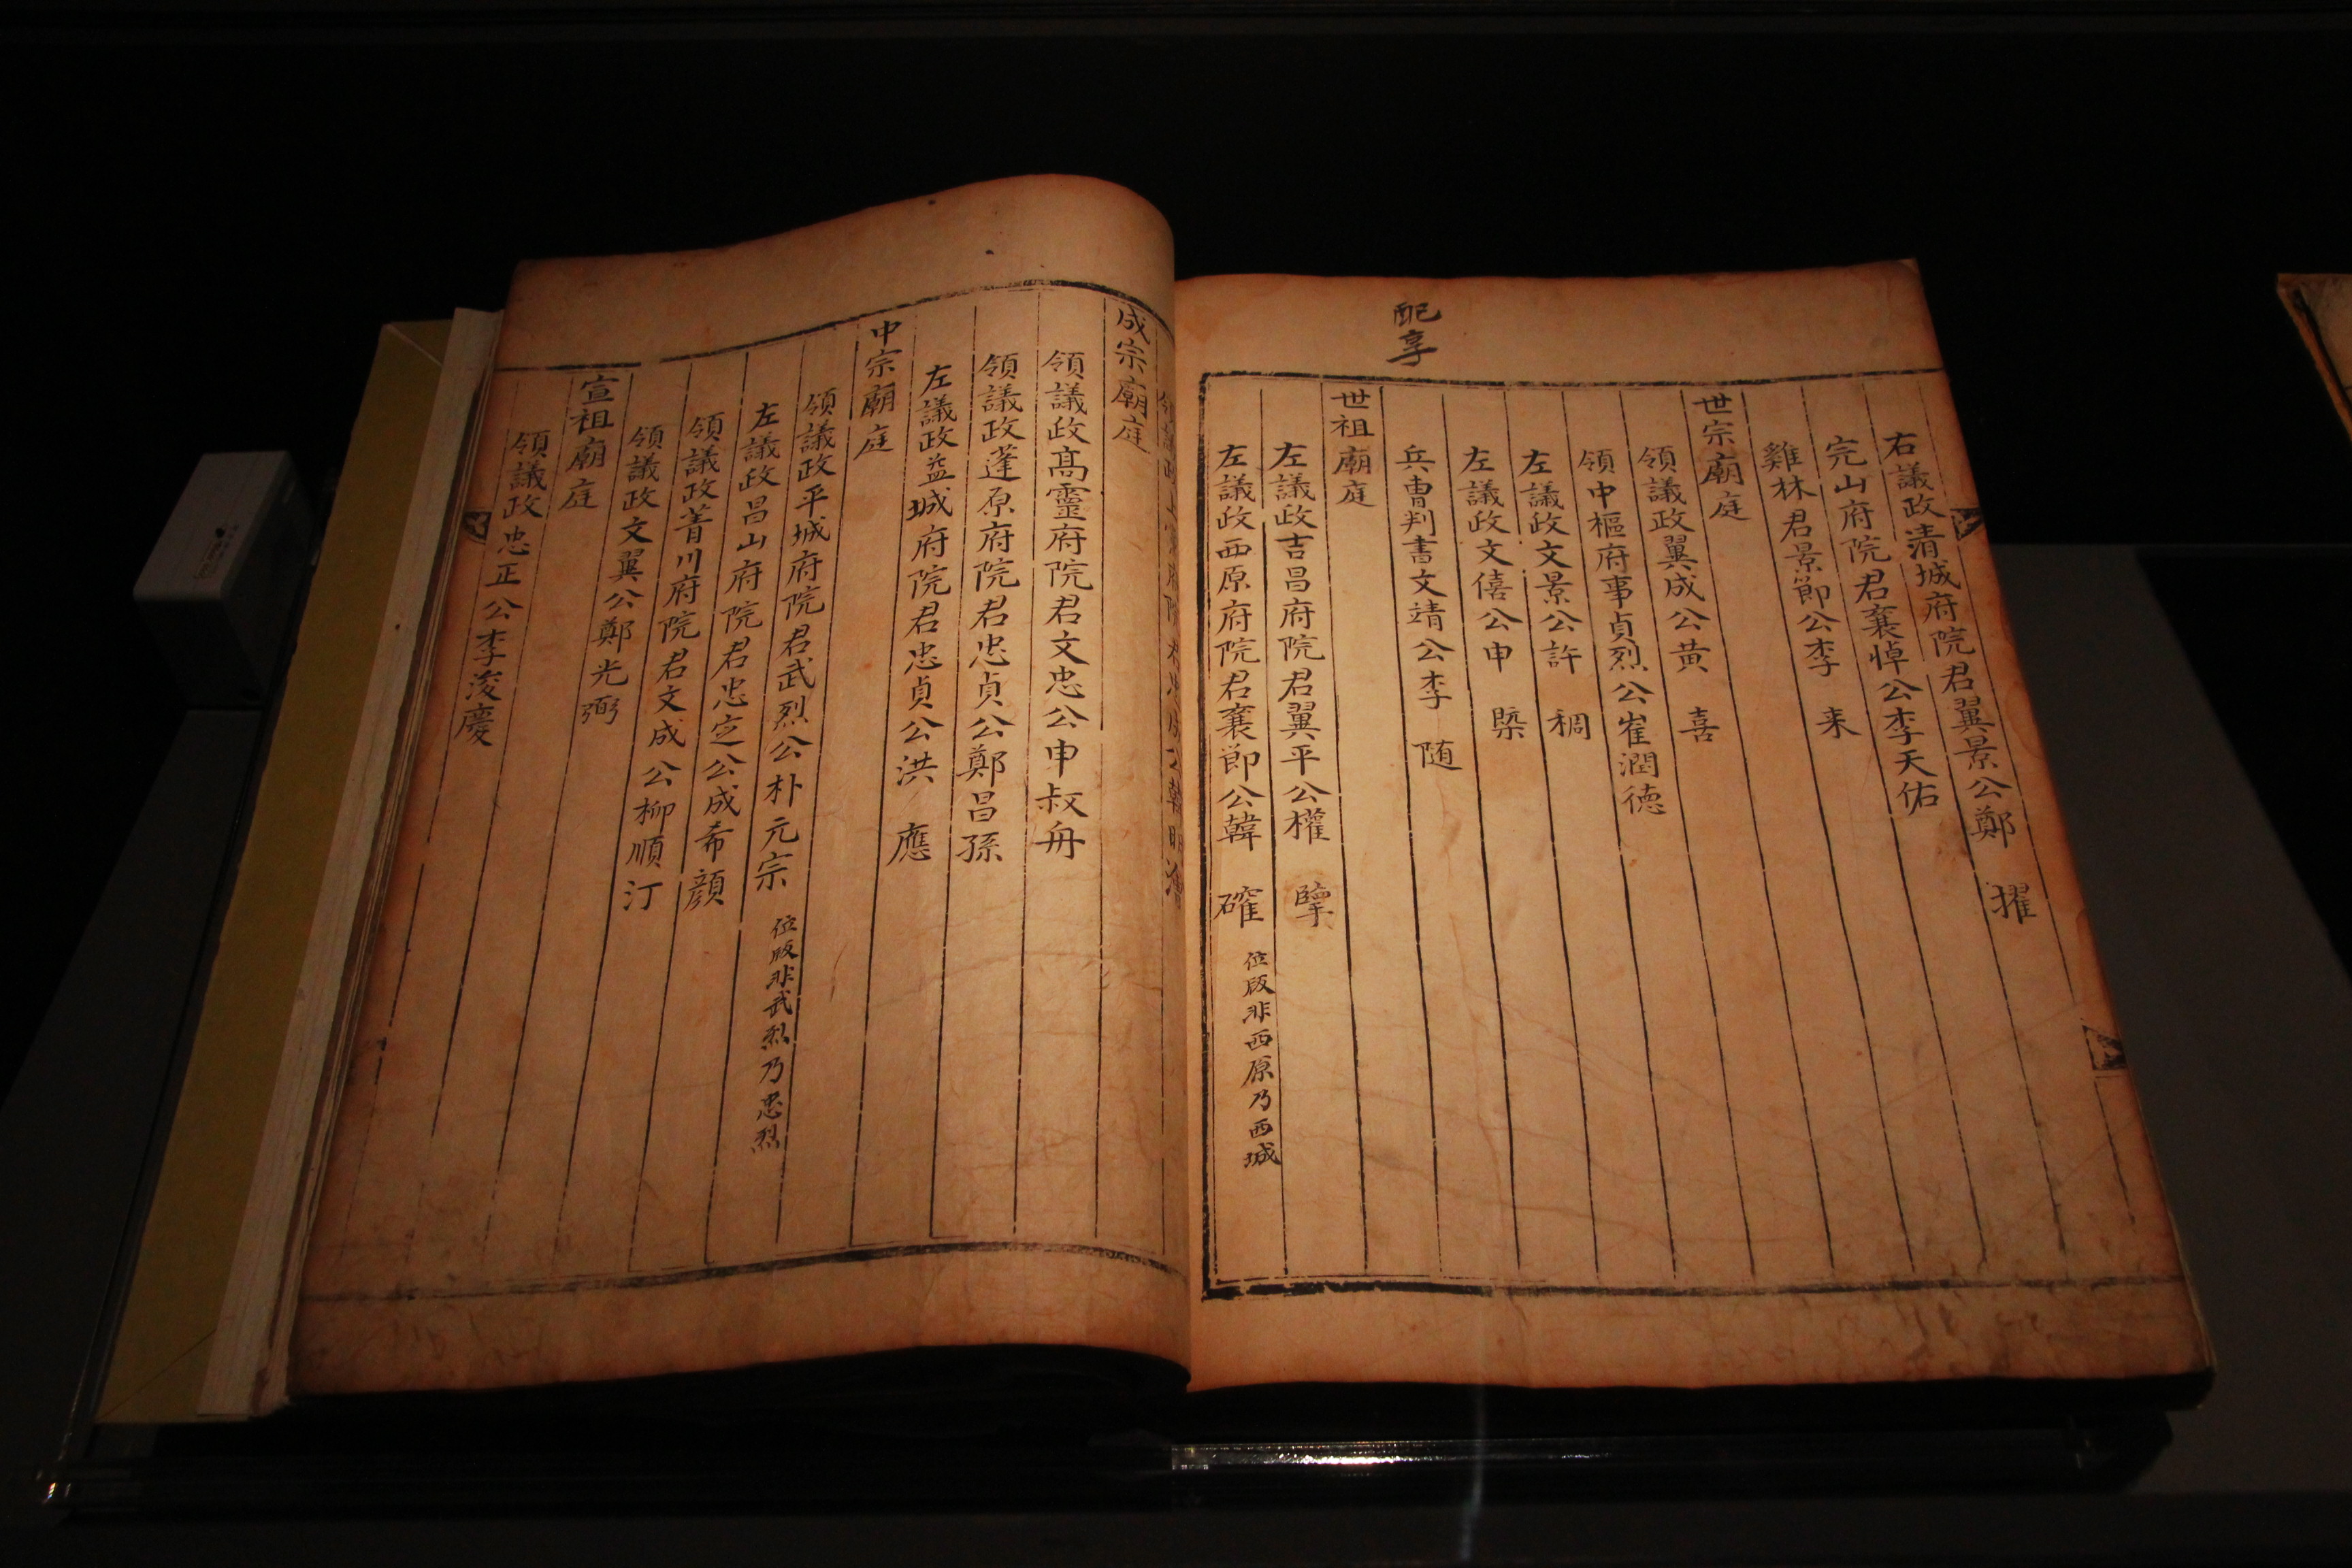 配享
右議政清城府院君翼景公鄭 擢
完山府院君襄悼公李天佑
雞林君景節公李 来
世宗廟庭
領議政翼成公黃 喜
領中樞府事貞烈公崔潤德
左議政文景公許 稠
左議政文僖公申 槩
兵曹判書文靖公李 随
世祖廟庭
左議政吉昌府院君翼平公權 擥
左議政西原府院君襄節公韓 確 位版非西原乃西城
成宗廟庭
領議政高靈府院君文忠公申叔舟
領議政蓬原府院君忠貞公鄭昌孫
左議政益城府院君忠貞公洪 應
中宗廟庭
領議政平城府院君武烈公朴元宗 位版非武烈乃忠烈
左議政昌山府院君忠定公成希顔
領議政菁川府院君文成公柳順汀
領議政文翼公鄭光弼
宣祖廟庭
領議政忠正公李浚慶